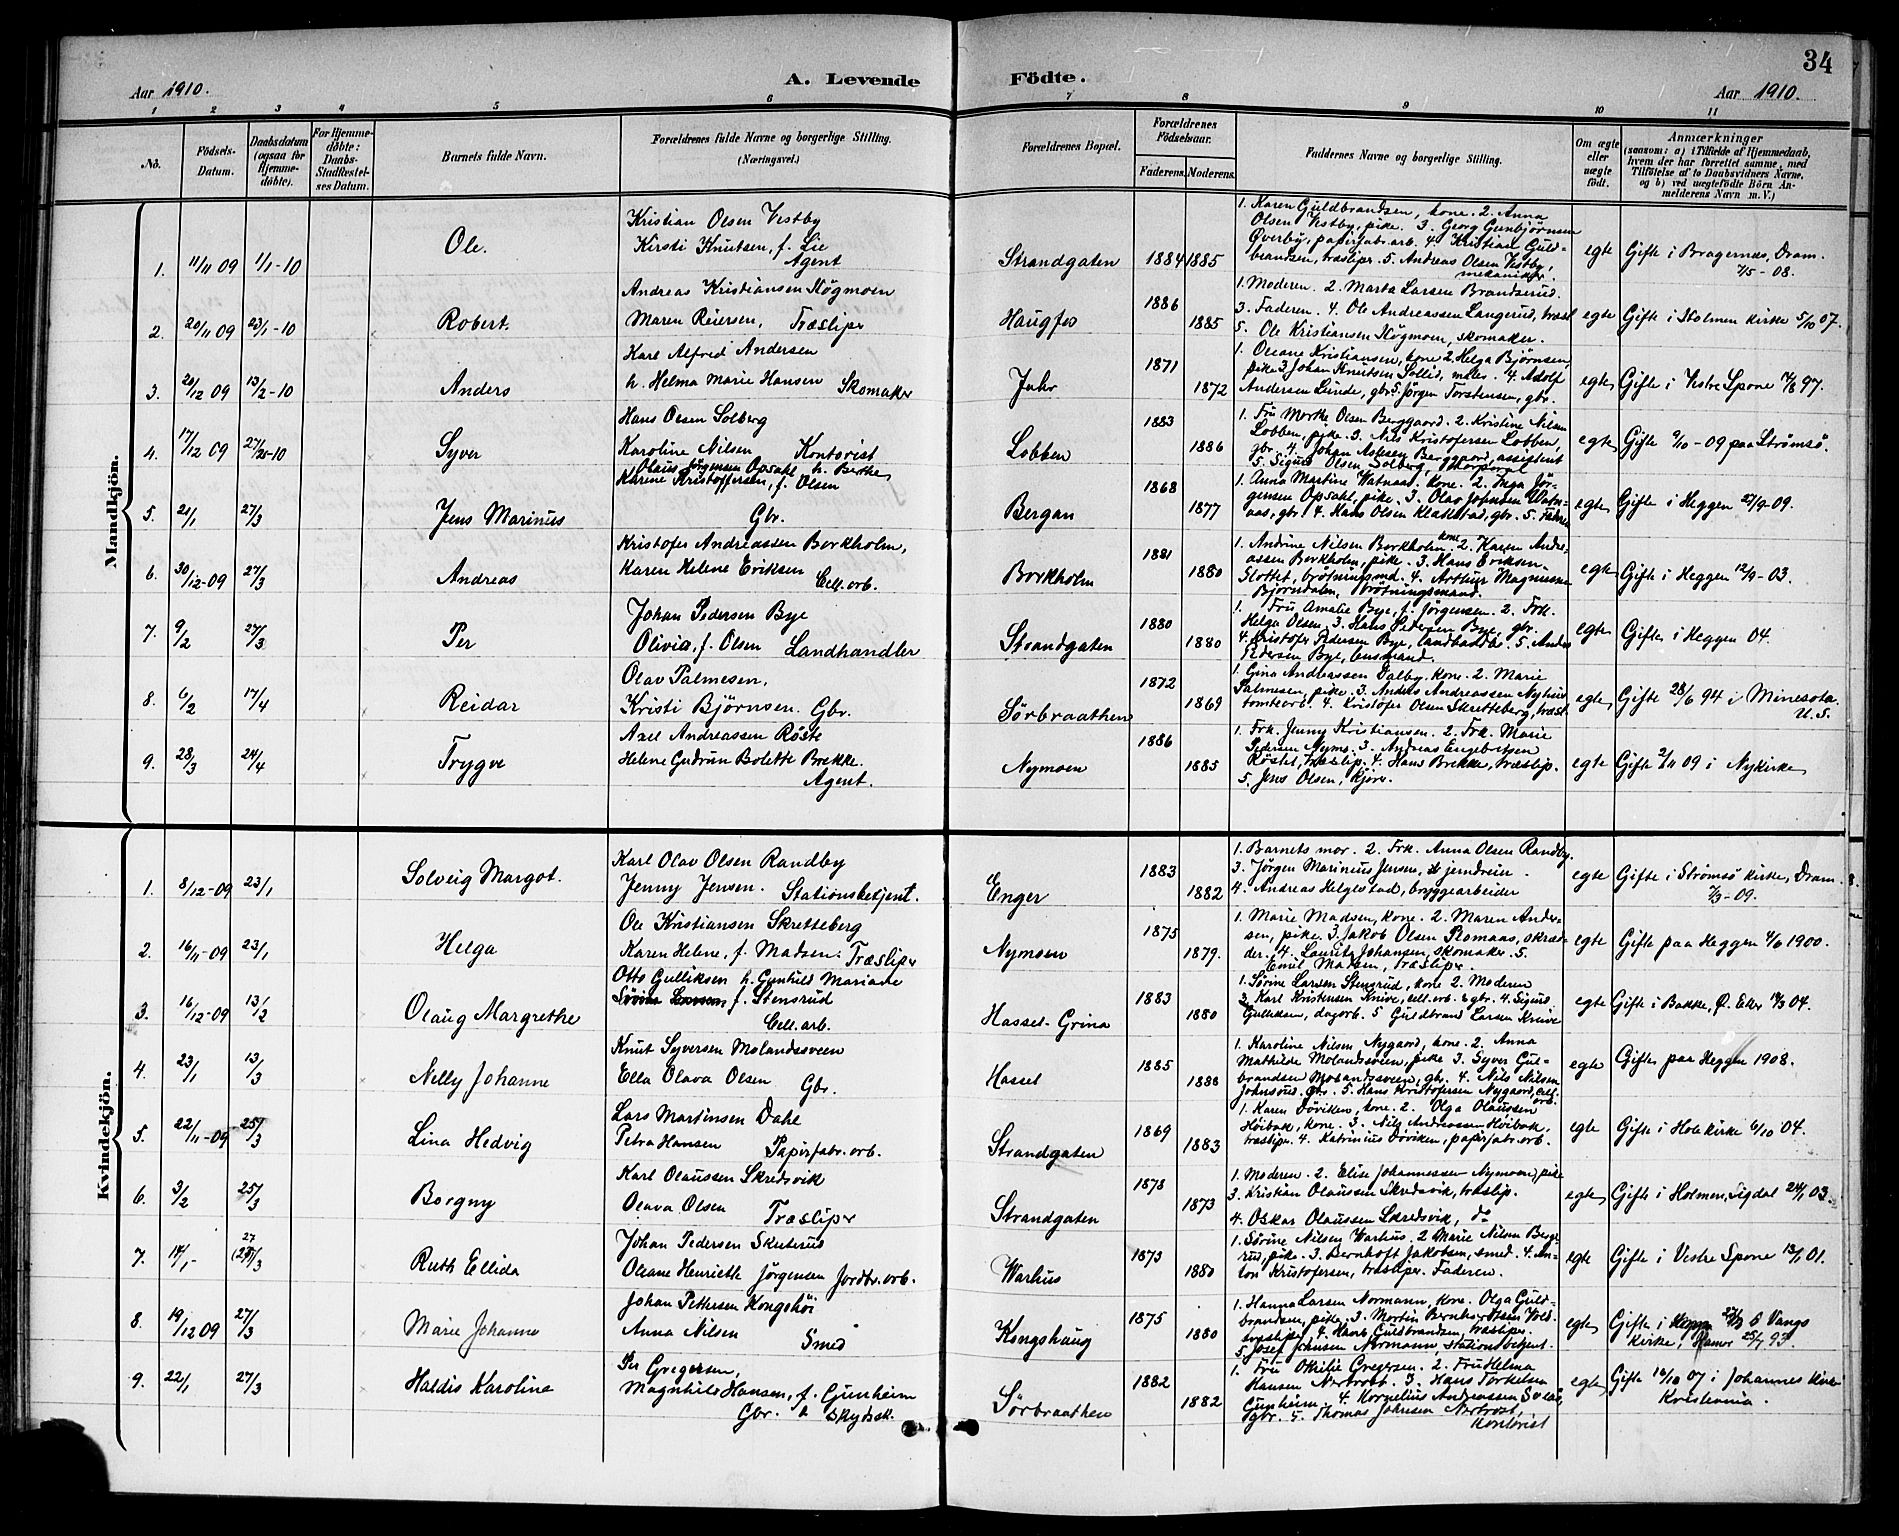 34
A. Levende Födte.
Aar 1910.
Aar 1910.
1 2 3 4 5 6 7 8 9 10 11
No.
Födsels-Datum.
Daabsdatum (ogsaa for Hjemme-döbte).
For Hjemme-döbte: Daabs-Stadfæstel-ses Datum.
Barnets fulde Navn.
Forældrenes fulde Navne og borgerlige Stilling.
(Næringsvei.)
Forældrenes Bopæl.
Forældrenes Födselsaar.
Faderens. Moderens.
Faddernes Navne og borgerlige Stilling.
Om ægte eller uægte födt.
Anmærkninger
(saasom: a) i Tilfælde af Hjemmedaab, hvem der har forrettet samme, med Tilföielse af to Daabsvidners Navne, og b) ved uægtefödte Börn An-melderens Navn m. V.)
Mandkjön.
1. 11/11 09 1/1-10 Ole.
Kristian Olsen Vestby
Kirsti Knutsen, f. Lie
Agent
Strandgaten 1884 1885
1. Karen Guldbrandsen, kone. 2. Anna
Olsen Vestby, pike. 3. Georg Gunbjörnsen
Øverby, papirfabr.arb. 4. Kristian Guld-
brandsen, træsliper. 5. Andreas Olsen Vestby,
mekaniker.
egte Gifte i Bragernæs, Dram.
2. 20/11 09 23/1-10 Robert.
Andreas Kristiansen Högmoen
Maren Reiersen, Træsliper
Haugfos 1886 1885
1. Moderen. 2. Marta Larsen Brandsrud.
3. Faderen. 4. Ole Andreassen Langerud, træsl
5. Ole Kristiansen Högmoen, skomaker.
egte Gifte i Holmen kirke 5/10 07.
3. 20/12 09 13/2-10 Anders
Karl Alfred Andersen
h. Helma Marie Hansen Skomaker
Juhr 1871 1872
1. Oleane Kristiansen, kone 2. Helga Björnsen,
pike 3. Johan Knutsen Sollid, maler. 4. Adolf
Andersen Lunde, gbr. 5. Jörgen Torstensen, gbr.
egte Gifte i Vestre Spone 97.
4. 17/12 09 Syver
Hans Olsen Solberg
Karoline Nilsen Kontorist
Lobben 1883 1886
1. Fru Marthe Olsen Berggaard. 2. Kristine Nilsen
Lobben, pike. 3. Nils Kristofersen Lobben,
gbr. 4. Johan Berggaard, assistent
5. Sigurd Olsen Solberg, korporal
egte Gifte 9/10-09 paa Strömsö.
5. 21/1 27/3 Jens Marinus
Olaus Jörgensen Opsahl h. Berthe
Karine Kristoffersen, f. Olsen
Gbr.
Bergan 1868 1877
1. Anna Martine Watnaas, kone. 2. Inga Jör-
gensen Opsahl, pike. 3. Olav Johnsen Watn-
aas, gbr. 4. Hans Olsen Klattestad, gbr. 5. Faderen
egte Gifte i Heggen 27/9-09.
6. 30/12-09 27/3 Andreas
Kristofer Andreassen Borkholm,
Karen Helene Eriksen Cell.arb.
Borkholm 1881 1880
1. Andrine Nilsen Borkholm kone. 2. Karen Andre-
assen Borkholm, pike. 3. Hans Eriksen
Slottet, brötningsmd. 4. Arthur Magnussen
Björndalen, brötningsmand.
egte Gifte i Heggen 12/9-03.
7. 9/2 27/3 Per
Johan Pedersen Bye
Olivia, f. Olsen Landhandler
Strandgaten 1880 1880
1. Fru Amalie Bye, f. Jörgensen. 2. Frk.
Helga Olsen. 3. Hans Pedersen Bye, gbr.
4. Kristofer Pedersen Bye, landhandler. 5. Anders
Pedersen Bye, lensmand.
egte Gifte i Heggen 04.
8. 6/2 17/4 Reidar
Olav Palmesen,
Kristi Björnsen. Gbr.
Sörbraathen 1872 1869
1. Gina Andreassen Dalby, kone. 2. Marie
Palmesen, pike. 3. Anders Andreassen Nyhus
tomtearb. 4. Kristofer Olsen Skretteberg, træsl.
egte Gifte 28/6 94 i Minesota.
U.S.
9. 28/3 24/4 Trygve
Axel Andreassen Röste
Helene Gudrun Bolette Brekke.
Agent.
Nymoen 1886 1885
1. Frk. Jenny Kristiansen. 2. Frk. Marie
Pedersen Nymo. 3. Andreas Engebretsen
Röstet, træslip. 4. Hans Brekke, træslip.
5. Jens Olsen, kjöre.
egte Gifte 2/11 09 i Nykirke
Kvindekjön.
1. 8/12-09 23/1 Solveig Margot.
Karl Olav Olsen Randby
Jenny Jensen. Stationsbetjent.
Enger 1883 1882
1. Barnets mor. 2. Frk. Anna Olsen Randby.
3. Jörgen Marinius Jensen, jerndreier.
4. Andreas Helgestad, bryggearbeider
egte Gifte i Strömsö kirke, Dram.
7/3-09.
2. 16/11-09 23/1 Helga
Ole Kristiansen Skretteberg
Karen Helene, f. Madsen. Træsliper
Nymoen 1875 1879.
1. Marie Madsen, kone. 2. Maren Ander-
sen, pike. 3. Jakob Olsen Romaas, skræd-
der. 4. Lauritz Johansen, skomaker. 5.
Emil Madsen, træsliper.
egte Gifte paa Heggen 4/6 1900.
3. 16/12-09 13/2 Olaug Margrethe
Otto Gulliksen h. Gunhild Mariane
Sörine Larsen, f. Stensrud
Cell.arb.
Hassel-Grina 1883 1880
1. Sörine Larsen Stensrud, kone 2. Moderen
3. Karl Kristensen Knive, cell.arb. & gbr. 4. Sigurd
Gulliksen, dagarb. 5 Guldbrand Larsen Knive
egte Gifte i Bakke, Ø. Eker 04.
4. 23/1 13/3 Nelly Johanne
Knut Syversen Molandssveen
Ella Olava Olsen Gbr.
Hassel 1885 1886
1. Karoline Nilsen Nygaard, kone. 2. Anna
Mathilde Molandssveen, pike 3. Syver Gul-
brandsen Molandssveen, gbr. 4. Nils Nilsen
Johnsrud, Gbr. 5. Hans Kristofersen Nygaard, cell.
arb.
egte Gifte paa Heggen 1908.
5. 22/11-09 25/3 Lina Hedvig
Lars Martinsen Dahl
Petra Hansen Papirfabr.arb.
Strandgaten 1869 1883
1. Karen Döviken, kone. 2. Olga Olaussen
Höibak, kone. 3. Nils Andreassen Höibak,
træsliper. 4. Katrinius Döviken, papirfabr.arb.
egte Gifte i Hole kirke 6/10 04.
6. 3/2 25/3 Borgny
Karl Olaussen Skredsvik
Olava Olsen Træsliper
Strandgaten 1878 1873
1. Moderen. 2. Elise Johannessen Nymoen, pike
3. Kristian Olaussen Skredsvik, træslip.
4. Oskar Olaussen Skredsvik, do
egte Gifte i Holmen, Sigdal 24/1 03.
7. 14/1- 27/3 Ruth Ellida
Johan Pedersen Skuterud
Oleane Henriette Jörgensen Jordbr.arb.
Warhus 1873 1880
1. Sörine Nilsen Warhus. 2 Marie Nilsen Berge-
rud, pike. 3. Bernhoft Jakobsen, smed. 4. An-
ton Kristofersen, træsliper. Faderen.
egte Gifte i Vestre Spone 13/1 01.
8. 19/12 09 27/3 Marie Johanne
Johan Pettersen Kongshöi
Anna Nilsen Smed
Kongshaug 1875 1880
1. Hanna Larsen Normann, kone. Olga Guld-
brandsen, pike. 3. Martin
træsliper, 4. Hans Guldbrandsen, træsliper.
5. Josef Johnsen Normann, stationsbetjent.
egte Gifte i Vangs
kirke, Hamar
9. 22/1 27/3 Haldis Karoline
Per Gregersen,
Magnhild Hansen, f. Gjunheim
Gbr. & skydssk.
Sörbraathen 1882 1882
1. Fru Othilie Gregersen. 2. Fru Helma
Hansen Nerbrost. 3. Hans Torkelsen
Gunheim. 4. Kornelius Andreassen
gbr. 5. Thomas Johnsen Nerbrost,
kontorist
egte Gifte 16/10 07 i Johannes kirke
Kristiania.